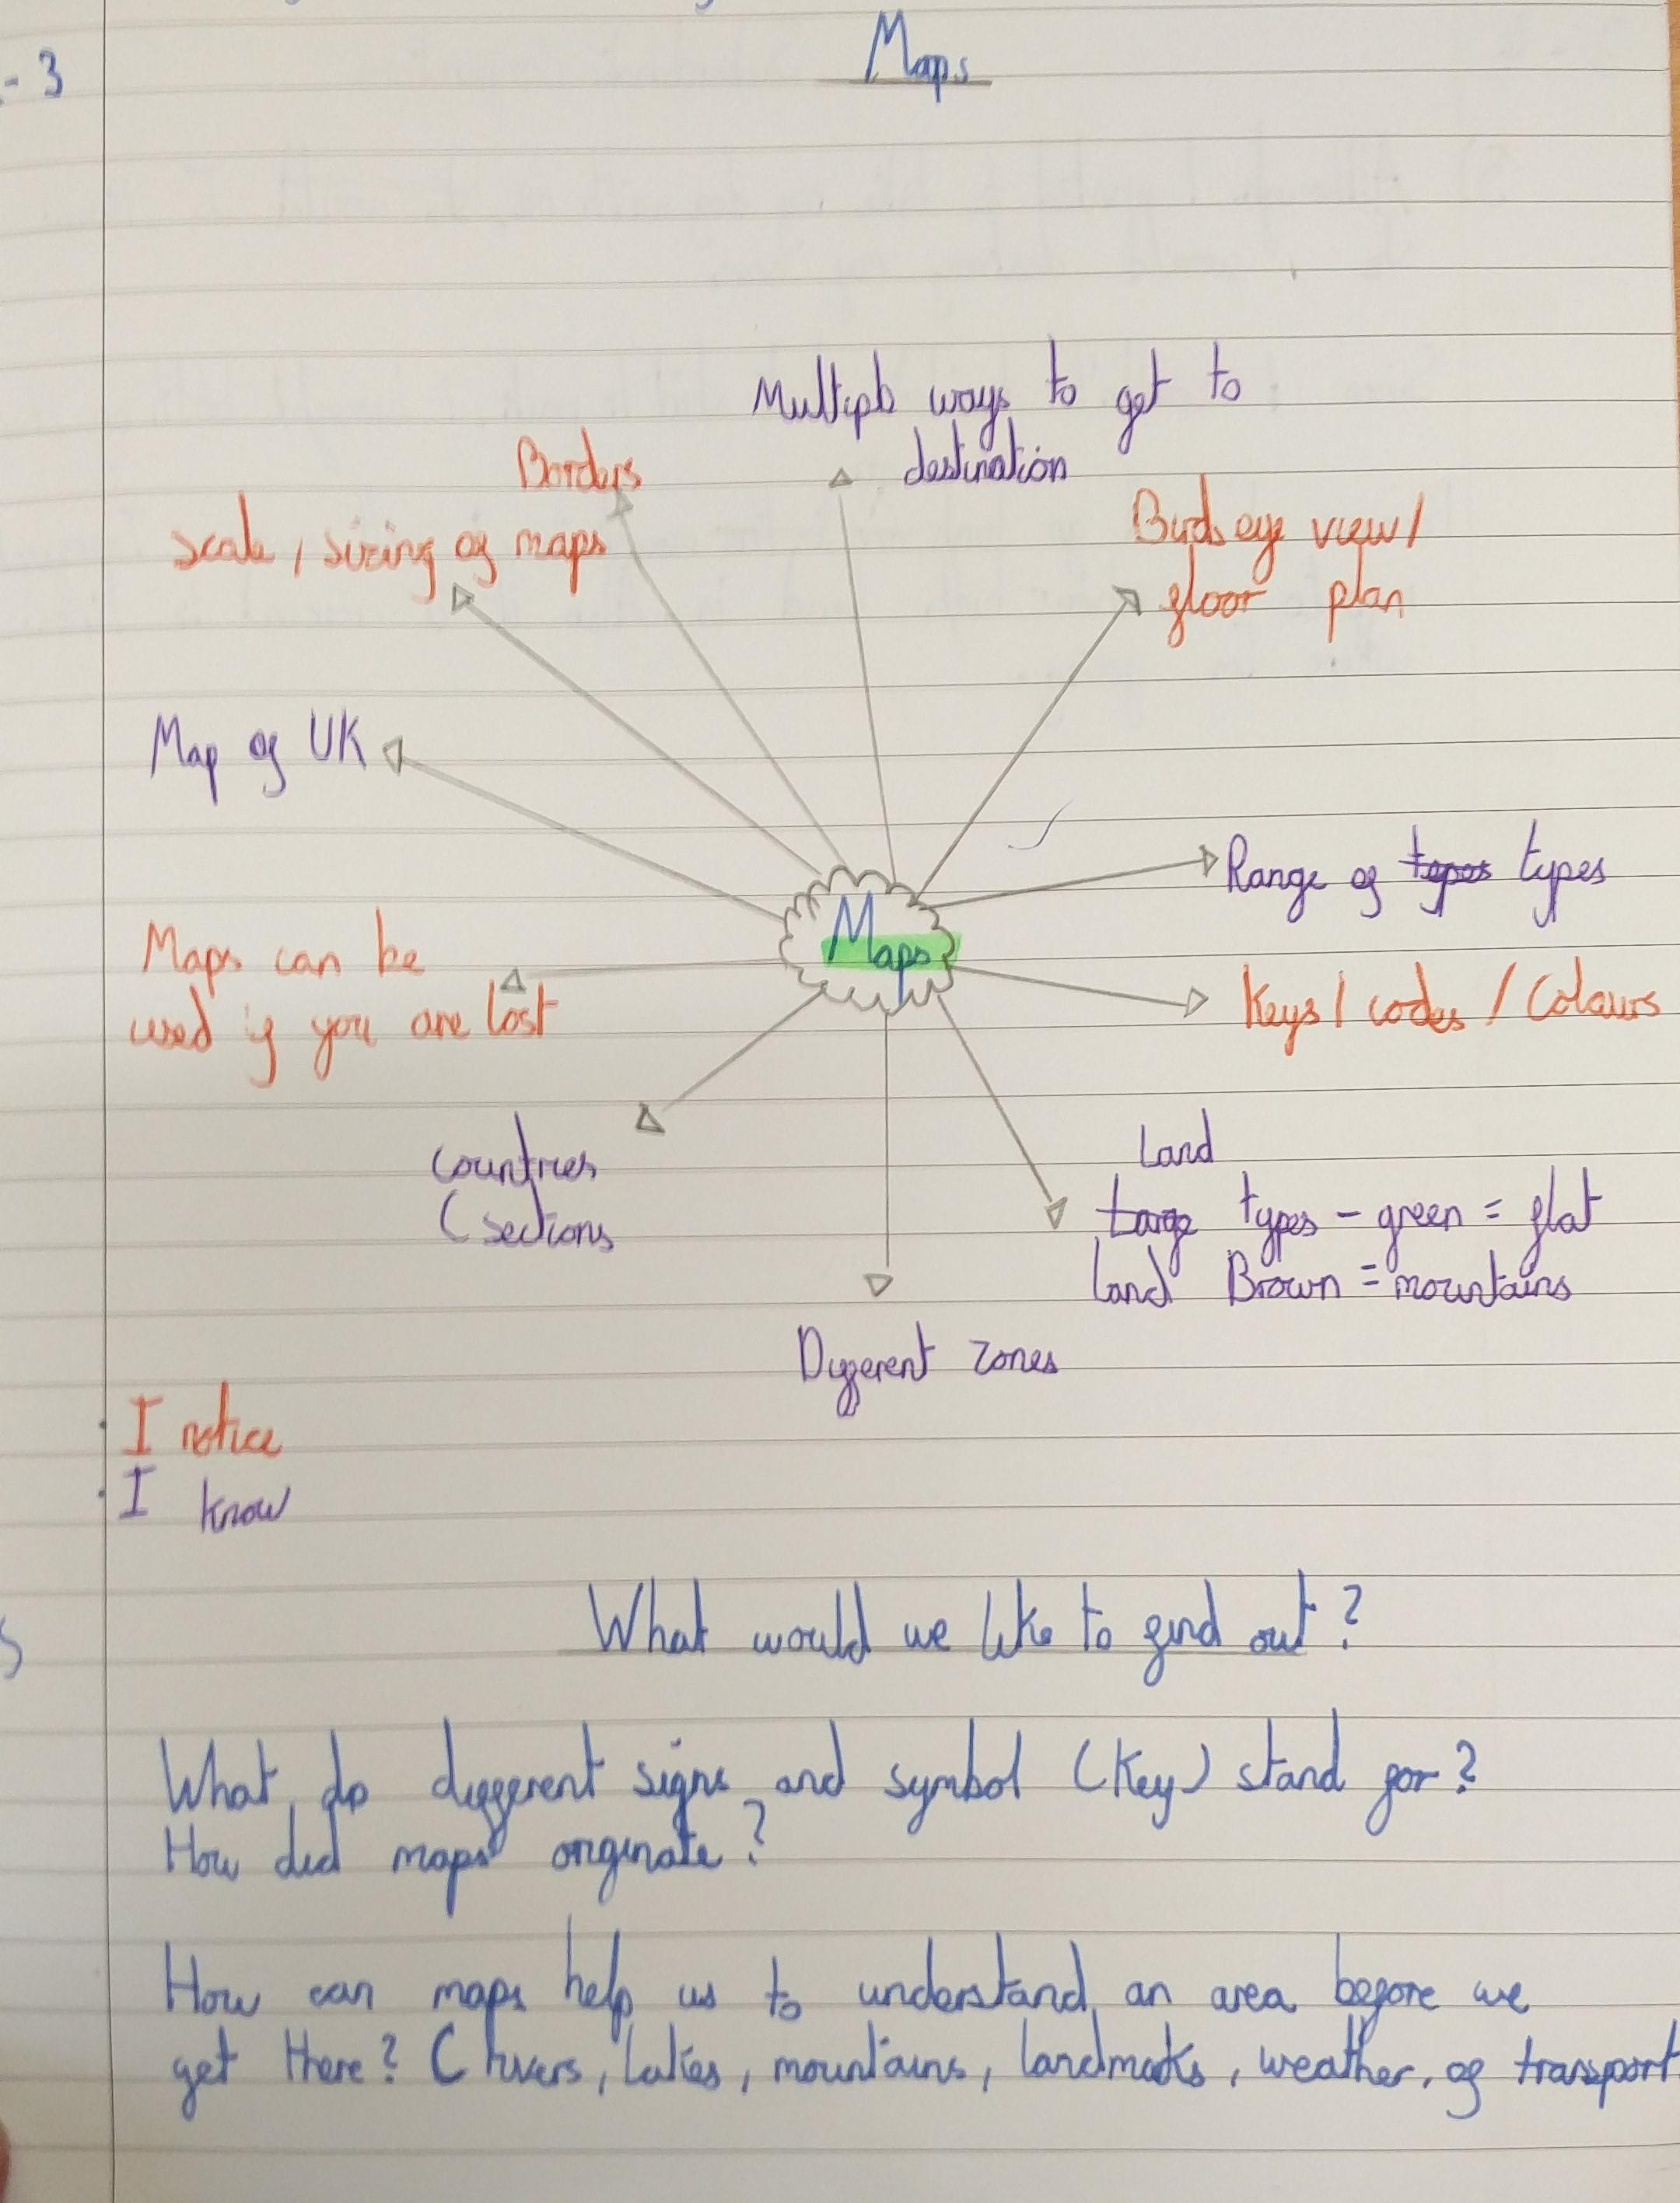 - 3
Maps
Multiple ways to get to
destination
Borders
Scale / sizing of maps
Birds eye view /
floor plan
Map of UK
Range of topes types
Maps
Maps can be
used if you are lost
Keys / codes / Colours
Countries
(sections
Land
Large types - green = flat
land Brown = mountains
Different zones
· I notice
· I know
What would we like to find out?
What do different signs and symbol (Key) stand for?
How did maps originate?
How can maps help us to understand an area before we
get there? (rivers, lakes, mountains, landmarks, weather, of transport